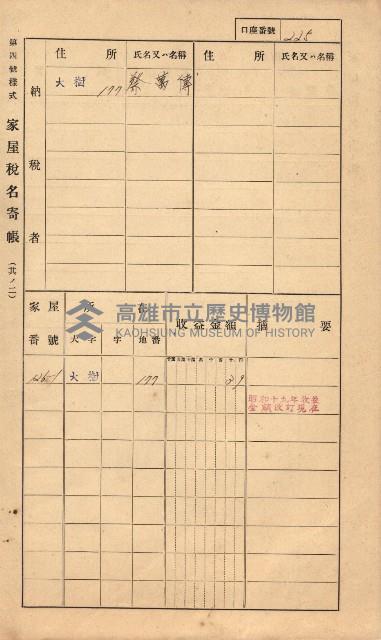 口座番號 225
第四號樣式 家屋稅名寄帳 (其ノ二)
納稅者
住所 氏名又ハ名稱 住所 氏名又ハ名稱
大樹 177 蔡萬偉
家屋番號 所在 收益金額 摘要
大字 字 地番
大樹 177 29
昭和十九年收益
金額改訂現在
高雄市立歷史博物館
KAOHSIUNG MUSEUM OF HISTORY